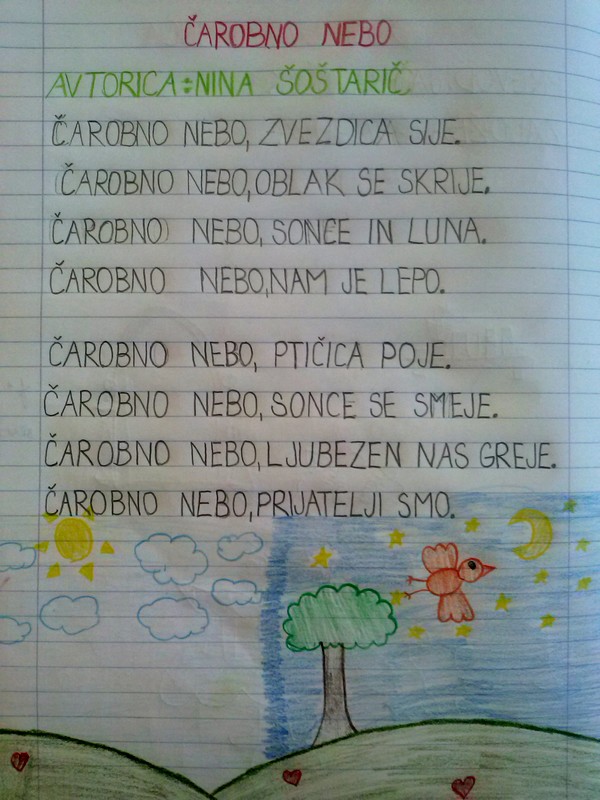 ČAROBNO NEBO
AVTORICA:NINA ŠOŠTARIČ
ČAROBNO NEBO, ZVEZDICA SIJE.
ČAROBNO NEBO, OBLAK SE SKRIJE.
ČAROBNO NEBO, SONCE IN LUNA.
ČAROBNO NEBO, NAM JE LEPO.
ČAROBNO NEBO, PTIČICA POJE.
ČAROBNO NEBO, SONCE SE SMEJE.
ČAROBNO NEBO, LJUBEZEN NAS GREJE.
ČAROBNO NEBO, PRIJATELJI SMO.